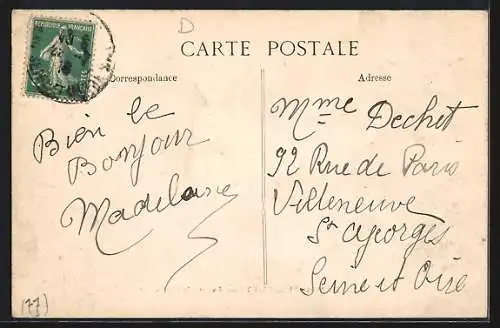 D
RÉPUBLIQUE FRANÇAISE
CARTE POSTALE
Correspondance
Adresse
Bien le
Bonjour
Madelaine
Mme Dechet
92 Rue de Paris
Villeneuve
St Georges
Seine et Oise
(77)